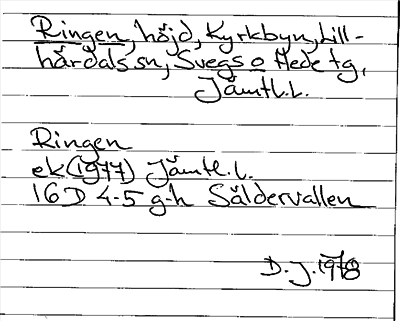 Ringen, höjd, Kyrkbyn, Lill-
härdals sn, Svegs o Hede tg,
Jämtl.l.
Ringen
ek (1977) Jämtl.l.
16D 4-5 g-h Säldervallen
D.J. 1978